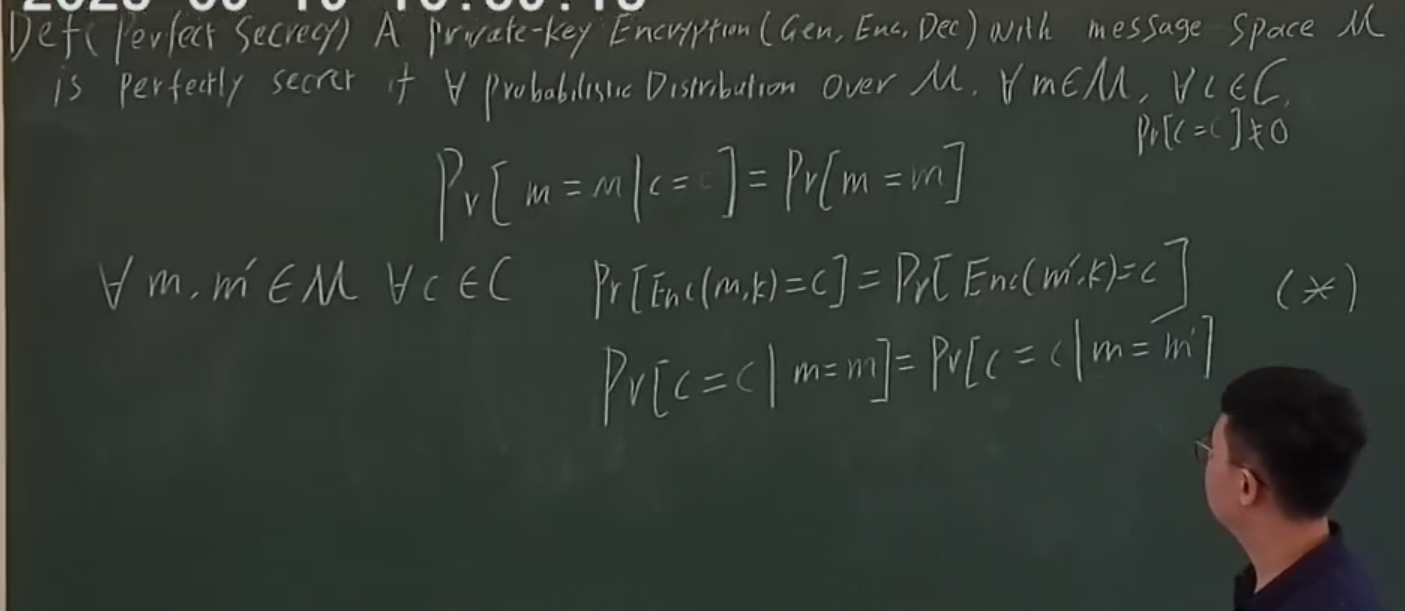 Def (Perfect Secrecy) A Private-key Encryption (Gen, Enc, Dec) with message space M
is perfectly secret if ∀ probabilistic Distribution over M, ∀ m∈M, ∀ c∈C,
Pr[C=c]≠0
Pr[m=m|c=c]=Pr[m=m]
∀ m, m′ ∈ M ∀ c ∈ C Pr[Enc(m,k)=c]=Pr[Enc(m′,k)=c] (*)
Pr[c=c|m=m]=Pr[c=c|m=m′]